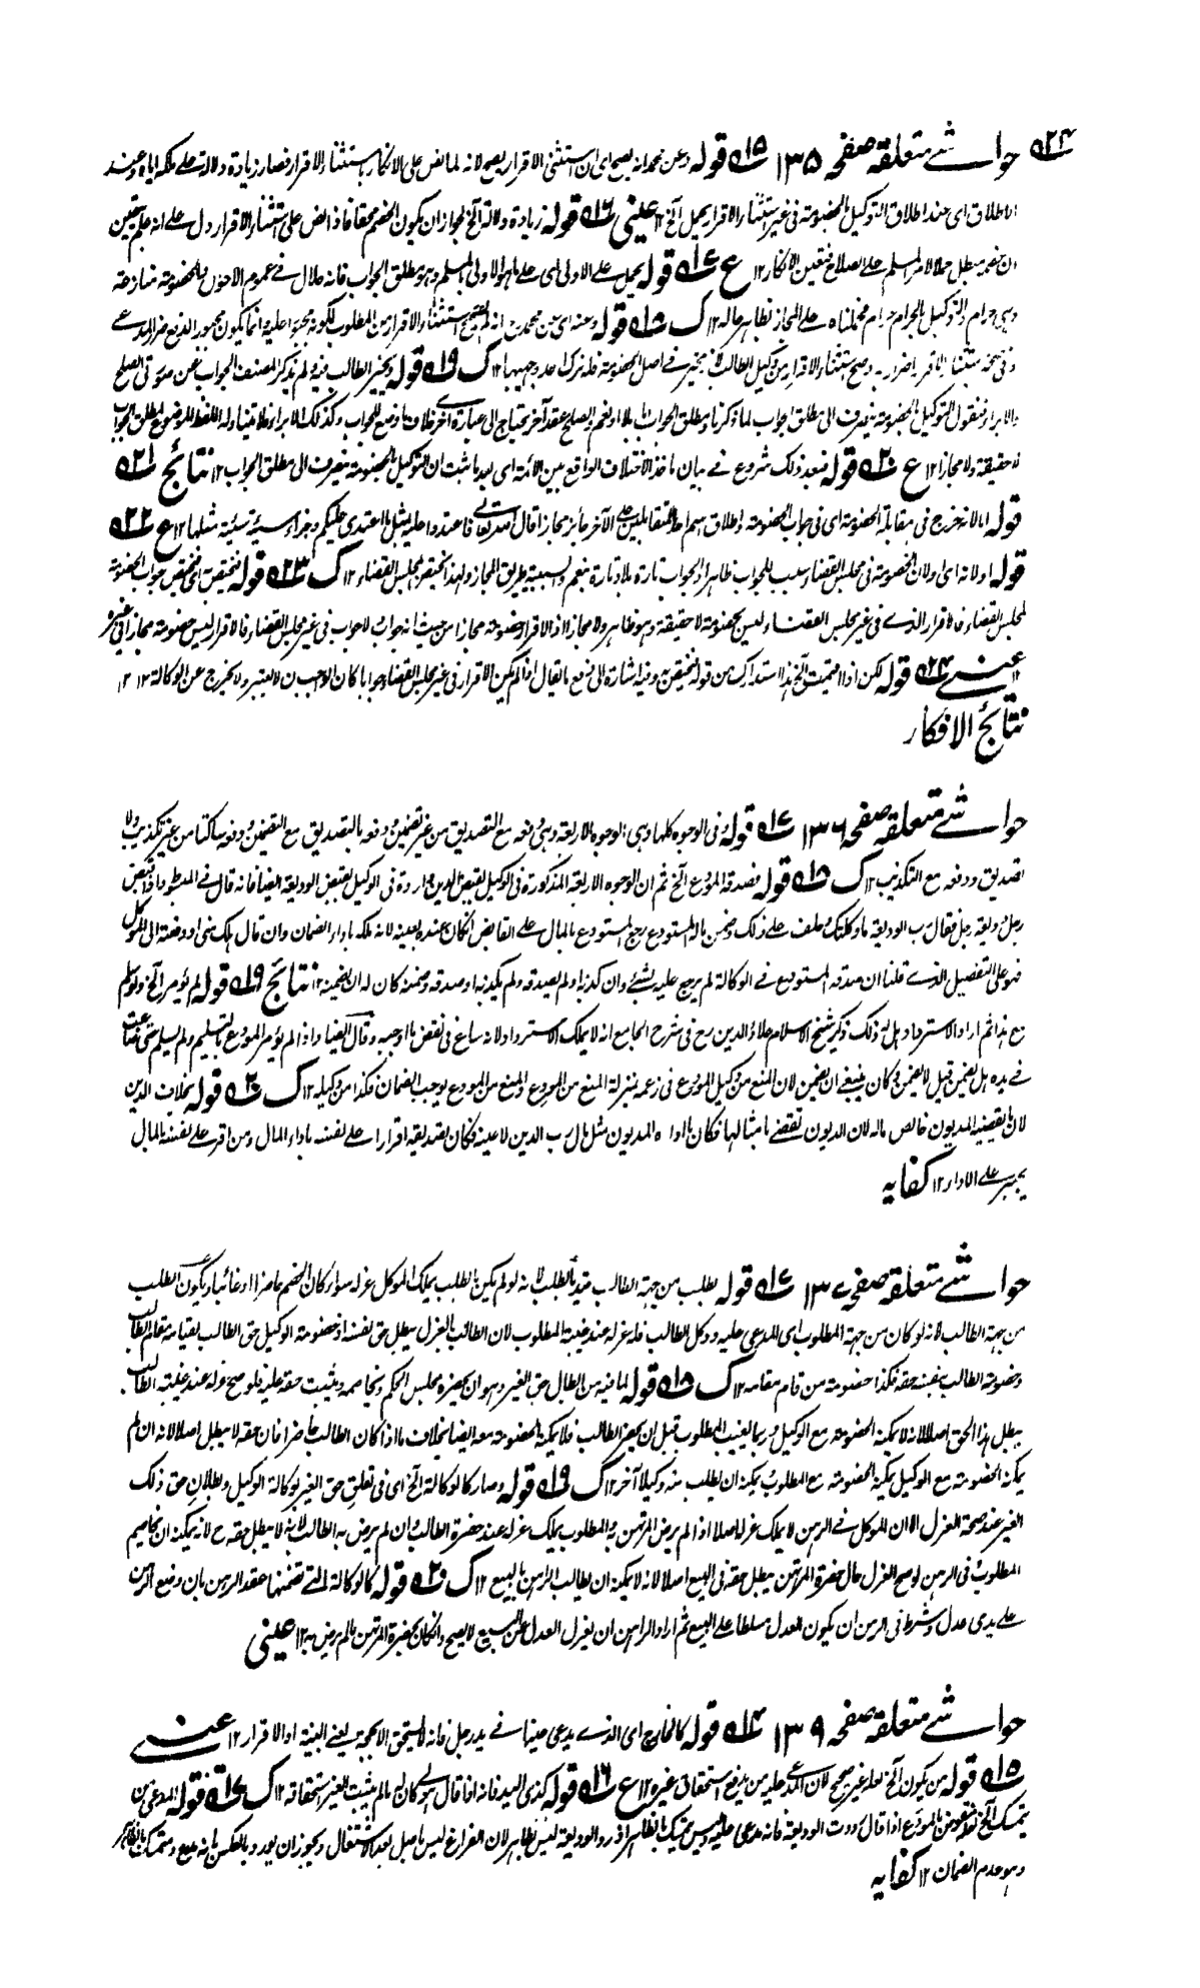 ٥٢٤ حواشے متعلقہ صفحہ ١٣٥ ١٥ قولہ وعن محمد انہ یصح ای ان استثنی الاقرار یصح لانہ لما نص علی الانکار باستثناء الاقرار فصار زیادۃ دلالۃ علے ملکہ ایاہ وعند
الاطلاق ای عند اطلاق التوکیل بالخصومۃ فی غیر استثناء الاقرار یحمل الخ ١٢ عینی ١٦ قولہ زیادۃ دلالۃ الخ لجواز ان یکون الخصم محقا فاذا نص علی استثناء الاقرار دل علے انہ علم بیقین
ان خصمہ مبطل حملا لامر المسلم علے الصلاح فتعین الانکار ١٢ ع ١٧ قولہ یحمل علے الاولی ای علے ما ہو الاولی بالمسلم وہو مطلق الجواب فانہ حلال فے عموم الاحوال والخصومۃ منازعۃ
وہی حرام والتوکیل بالحرام حرام فحملناہ علے المجاز نظاہر حالہ ١٢ ک ١٨ قولہ وعنہ ای عن محمد انہ لم یصح استثناء الاقرار من المطلوب لکونہ مجبورا علیہ انما یکون مجبورا لدفع ضرر المدعے
وفی صحۃ استثناء الاقرار اضرار بہ وصح استثناء الاقرار من وکیل الطالب لانہ مخیر فے اصل الخصومۃ فلہ ترک احد وجہیہا ١٢ ک ١٩ قولہ ویخیر الطالب فیہ لم یذکر المصنف الجواب عن صورتی الصلح
والابراء فنقول التوکیل بالخصومۃ ینصرف الی مطلق الجواب لما ذکرنا ومطلق الجواب اما بلا او نعم والصلح عقد آخر یحتاج الی عبارۃ اخرے خلاف ما وضع للجواب وکذلک الابراء فلا یتناولہ اللفظ الموضوع لمطلق الجواب
لا حقیقۃ ولا مجازا ١٢ ع ٢٠ قولہ فبعد ذلک شروع فے بیان ماخذ الاختلاف الواقع بین الائمۃ ای بعد ما ثبت ان التوکیل بالخصومۃ ینصرف الی مطلق الجواب ١٢ نتائج ٢١
قولہ اما لانہ خرج فی مقابلۃ الخصومۃ ای فی جواب الخصومۃ واطلاق اسم احد المتقابلین علے الآخر جائز مجازا قال اللہ تعالی فاعتدوا علیہ بمثل ما اعتدی علیکم وجزاء سیئۃ سیئۃ مثلہا ١٢ ع ٢٢
قولہ او لانہ ای او لان الخصومۃ فی مجلس القضاء سبب للجواب ظاہرا والجواب تارۃ بلا وتارۃ بنعم والسببیۃ طریق المجاز ولہذا اختص بمجلس القضاء ١٢ ک ٢٣ قولہ فیختص بہ ای فیختص جواب الخصومۃ
بمجلس القضاء فالاقرار الذے فی غیر مجلس القضاء لیس بخصومۃ لا حقیقۃ وہو ظاہر ولا مجازا اذ الاقرار خصومۃ مجازا من حیث انہ جواب ولا جواب فی غیر مجلس القضاء فالاقرار لیس بخصومۃ مجازا فی غیرہ
١٢ عینے ٢٤ قولہ لکن اذا اقیمت الخ ہذا استدراک من قولہ فیختص بہ وفیہ اشارۃ الی دفع ما یقال اذا لم یکن الاقرار فی غیر مجلس القضاء جوابا کان الواجب ان لا یعتبر ولا یخرج عن الوکالۃ ١٢ ١٢
نتائج الافکار
حواشے متعلقہ صفحہ ١٣٦ ١٧ قولہ فی الوجوہ کلہا وہی الوجوہ الاربعۃ وہی دفعہ مع التصدیق من غیر تضمین ودفعہ بالتصدیق مع التضمین ودفعہ ساکتا من غیر تکذیب ولا
تصدیق ودفعہ مع التکذیب ١٢ ک ١٨ قولہ فصدقہ المودع الخ ثم ان الوجوہ الاربعۃ المذکورۃ فی الوکیل بقبض الدین واردۃ فی الوکیل بقبض الودیعۃ ایضا فانہ قال فے المبسوط واذا قبض
رجل ودیعۃ رجل فقال رب الودیعۃ ما وکلتک وحلف علے ذلک وضمن مالہ المستودع رجع المستودع بالمال علے القابض ان کان عندہ بعینہ لانہ ملکہ باداء الضمان وان قال ہلک منی او دفعتہ الی الموکل
فہو علی التفصیل الذے قلنا ان صدقہ المستودع فے الوکالۃ لم یرجع علیہ بشئ وان کذبہ او لم یصدقہ ولم یکذبہ او صدقہ وضمنہ کان لہ ان یضمنہ ١٢ نتائج ١٩ قولہ لم یؤمر الخ ولو سلم
مع ہذا ثم اراد الاسترداد ہل لہ ذلک ذکر شیخ الاسلام علاء الدین رح فی شرح الجامع انہ لا یملک الاسترداد لانہ ساع فی نقض ما اوجبہ وقال ایضا واذا لم یؤمر المودع بالتسلیم ولم یسلم حتی ضاعت
فے یدہ ہل یضمن قیل لا یضمن وکان ینبغے ان یضمن لان المنع من وکیل المودع فی زعمہ بمنزلۃ المنع من المودع والمنع من المودع یوجب الضمان فکذا من وکیلہ ١٢ ک ٢٠ قولہ بخلاف الدین
لان ما یقضیہ المدیون خالص مالہ لان الدیون تقضے بامثالہا فکان ما اداہ المدیون مثل مال رب الدین لا عینہ فکان تصدیقہ اقرارا علے نفسہ باداء المال ومن اقر علے نفسہ بالمال
یجبر علے الاداء ١٢ کفایہ
حواشے متعلقہ صفحہ ١٣٧ ١٧ قولہ بطلب من جہۃ الطالب قید بالطلب لانہ لو لم یکن بالطلب یملک الموکل عزلہ سواء کان الخصم حاضرا او غائبا ویکون الطلب
من جہۃ الطالب لانہ لو کان من جہۃ المطلوب ای المدعی علیہ ووکل الطالب فلہ عزلہ عند غیبۃ المطلوب لان الطالب بالعزل یبطل حق نفسہ اذ خصومۃ الوکیل حق الطالب لقیامہ مقام الطالب
وخصومۃ الطالب بنفسہ حقہ فکذا خصومۃ من قام مقامہ ١٢ ک ١٨ قولہ لما فیہ من ابطال حق الغیر وہو ان یحضرہ مجلس الحکم ویخاصمہ ویثبت حقہ علیہ فلو صح عزلہ عند غیبۃ الطالب
یبطل ہذا الحق اصلا لانہ لا یمکنہ الخصومۃ مع الوکیل وربما یغیب المطلوب قبل ان یحضر الطالب فلا یمکنہ الخصومۃ معہ ایضا بخلاف ما اذا کان الطالب حاضرا فان حقہ لا یبطل اصلا لانہ ان لم
یمکنہ الخصومۃ مع الوکیل یمکنہ الخصومۃ مع المطلوب ویمکنہ ان یطلب منہ وکیلا آخر ١٢ ک ١٩ قولہ وصار کالوکالۃ الخ ای فی تعلق حق الغیر بوکالۃ الوکیل وبطلان حق ذلک
الغیر عند صحۃ العزل الا ان الموکل فے الرہن لا یملک عزلہ اصلا اذا لم یرض المرتہن بہ والمطلوب یملک عزلہ عند حضرۃ الطالب وان لم یرض بہ الطالب لانہ لا یبطل حقہ ح لانہ یمکنہ ان یخاصم
المطلوب وفی الرہن لو صح العزل حال حضرۃ المرتہن یبطل حقہ فی البیع اصلا لانہ لا یمکنہ ان یطالب الراہن بالبیع ١٢ ک ٢٠ قولہ کالوکالۃ التے تضمنہا عقد الرہن بان وضع الرہن
علے یدی عدل وشرط فی الرہن ان یکون العدل مسلطا علے البیع ثم اراد الراہن ان یعزل العدل عن البیع لا یصح وان کان بحضرۃ المرتہن ما لم یرض بہ ١٢ عینی
حواشے متعلقہ صفحہ ١٣٩ ١٤ قولہ کالخارج ای الذے یدعی عینا فے ید رجل فانہ لا یستحق الا بحجۃ یعنے البینۃ او الاقرار ١٢ عینے
١٥ قولہ من یکون الخ لعلہ غیر صحیح لان المدعے علیہ من یدفع استحقاق غیرہ ١٢ ع ١٦ قولہ کذی الید فانہ اذا قال ہو لی کان لہ ما لم یثبت الغیر استحقاقہ ١٢ ک ١٧ قولہ المدعی من
یتمسک الخ نقض بالمودع اذا قال رددت الودیعۃ فانہ مدعی علیہ ولیس بمتمسک بالظاہر اذ رد الودیعۃ لیس بظاہر لان الفراغ لیس باصل بعد الاشتغال
وہو عدم الضمان ١٢ کفایہ